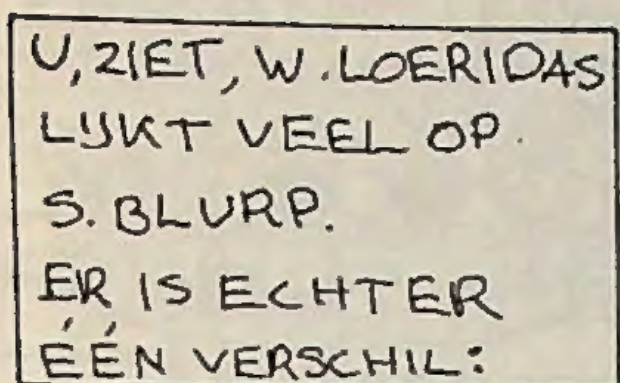 U, ZIET, W. LOERIDAS
LIJKT VEEL OP.
S. BLURP.
ER IS ECHTER
ÉÉN VERSCHIL: